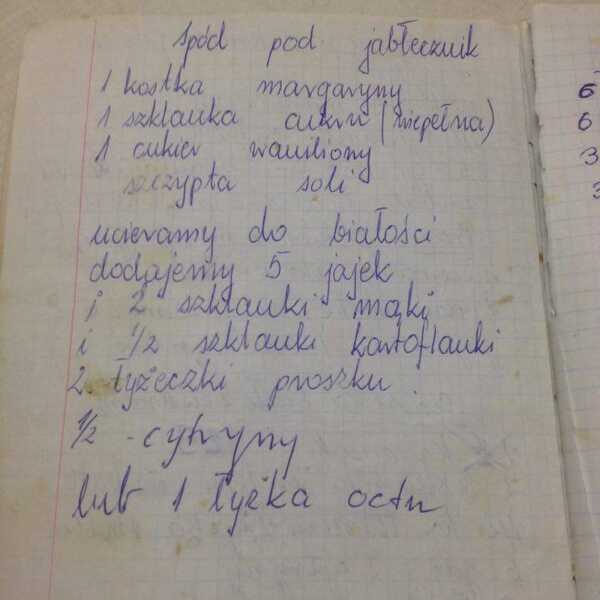 Spód pod jabłecznik
1 kostka margaryny
1 szklanka cukru (niepełna)
1 cukier waniliony
szczypta soli
ucieramy do białości
dodajemy 5 jajek
i 2 szklanki mąki
i 1/2 szklanki kartoflanki
2 łyżeczki proszku.
1/2 cytryny
lub 1 łyżka octu
6
6
3
3